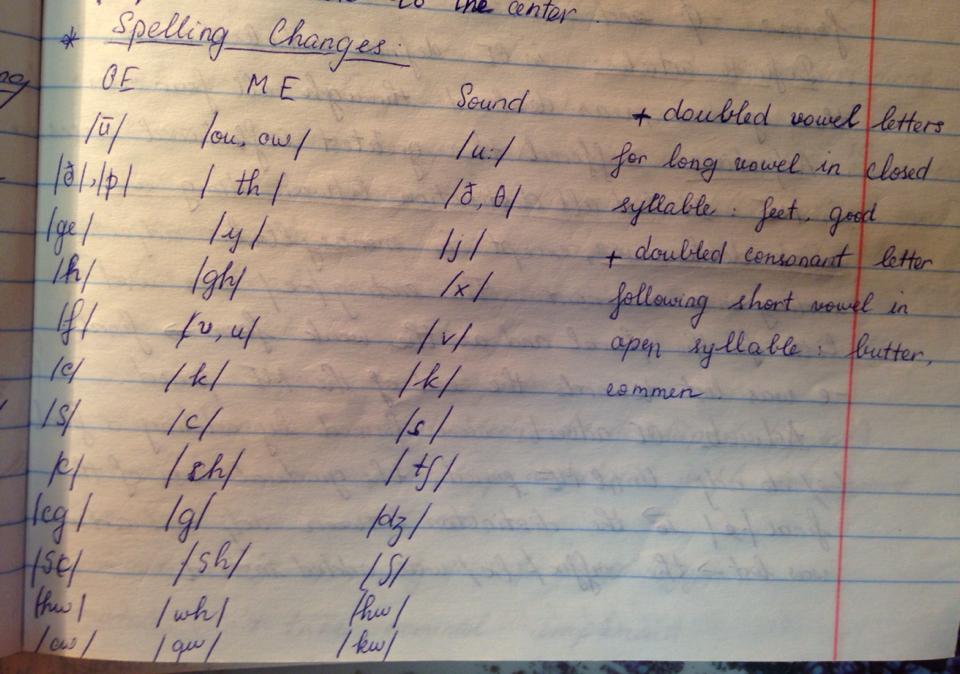 to the center.
* Spelling Changes:
OE ME Sound
/ū/ /ou, ow/ /u:/
/ð/, /þ/ /th/ /ð, θ/
/ge/ /y/ /j/
/h/ /gh/ /x/
/f/ /v, u/ /v/
/c/ /k/ /k/
/s/ /c/ /s/
/c/ /ch/ /tʃ/
/cg/ /g/ /dʒ/
/sc/ /sh/ /ʃ/
/hw/ /wh/ /hw/
/cw/ /qw/ /kw/
+ doubled vowel letters
for long vowel in closed
syllable: feet, good
+ doubled consonant letter
following short vowel in
open syllable: butter,
commen